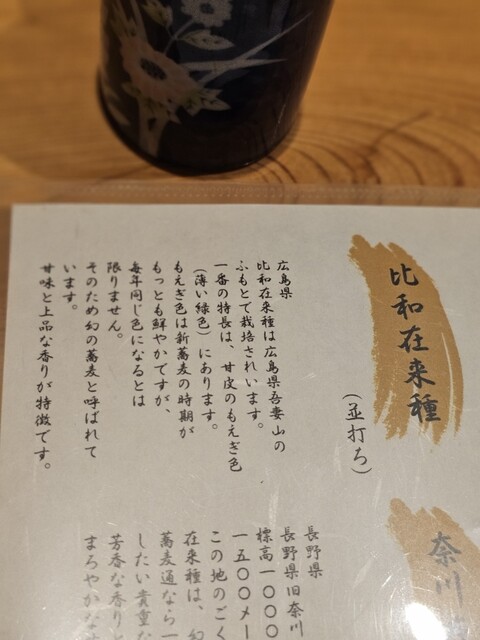 比和在来種
(並打ち)
広島県
比和在来種は広島県吾妻山の
ふもとで栽培されいます。
一番の特長は、甘皮のもえぎ色
(薄い緑色)にあります。
もえぎ色は新蕎麦の時期が
もっとも鮮やかですが、
毎年同じ色になるとは
限りません。
そのため幻の蕎麦と呼ばれて
います。
甘味と上品な香りが特徴です。
奈川
長野県
長野県旧奈川
標高一〇〇〇
一五〇〇メー
この地のごく
在来種は、幻
蕎麦通なら一
したい貴重な
芳香な香りと
まろやかな